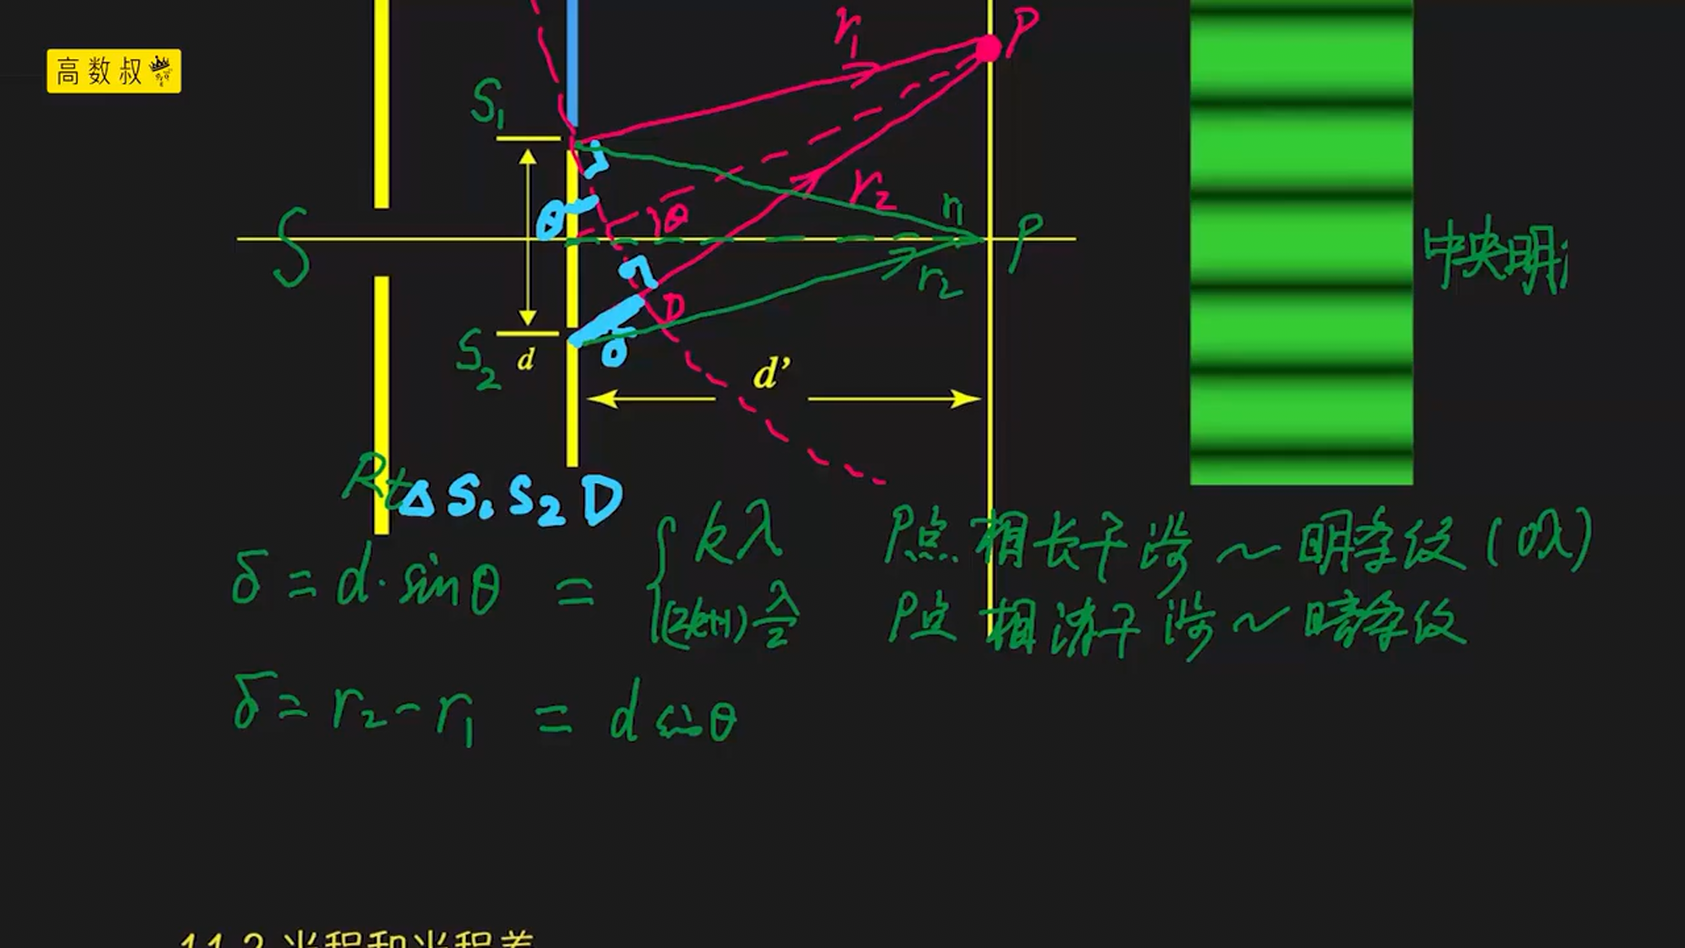 高数叔
r₁
P
S₁
r₂
θ
θ
r₁
P
S
r₂
中央明
D
δ
S₂
d
d’
Rt△S₁S₂D
δ = d·sinθ = { kλ P点 相长干涉 ~ 明条纹 (0λ)
(2k+1) λ/2 P点 相消干涉 ~ 暗条纹
δ = r₂ - r₁ = d sinθ
11.2 光程和光程差